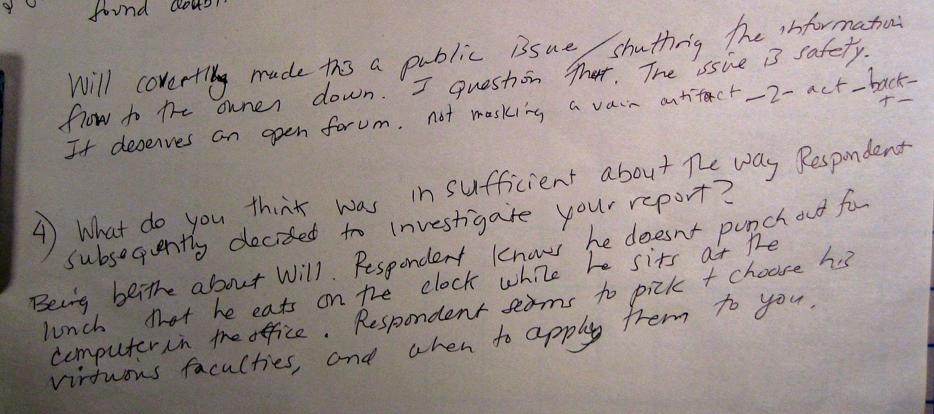 found doubt
Will covertly made this a public issue / shutting the information
flow to the owner down. I question that. The issue is safety.
It deserves an open forum. not masking a vain artifact -2- act - back-
4) What do you think was insufficient about the way Respondent
subsequently decided to investigate your report?
Being blithe about Will. Respondent knows he doesnt punch out for
lunch that he eats on the clock while he sits at the
computer in the office. Respondent seems to pick + choose his
virtuous faculties, and when to apply them to you.